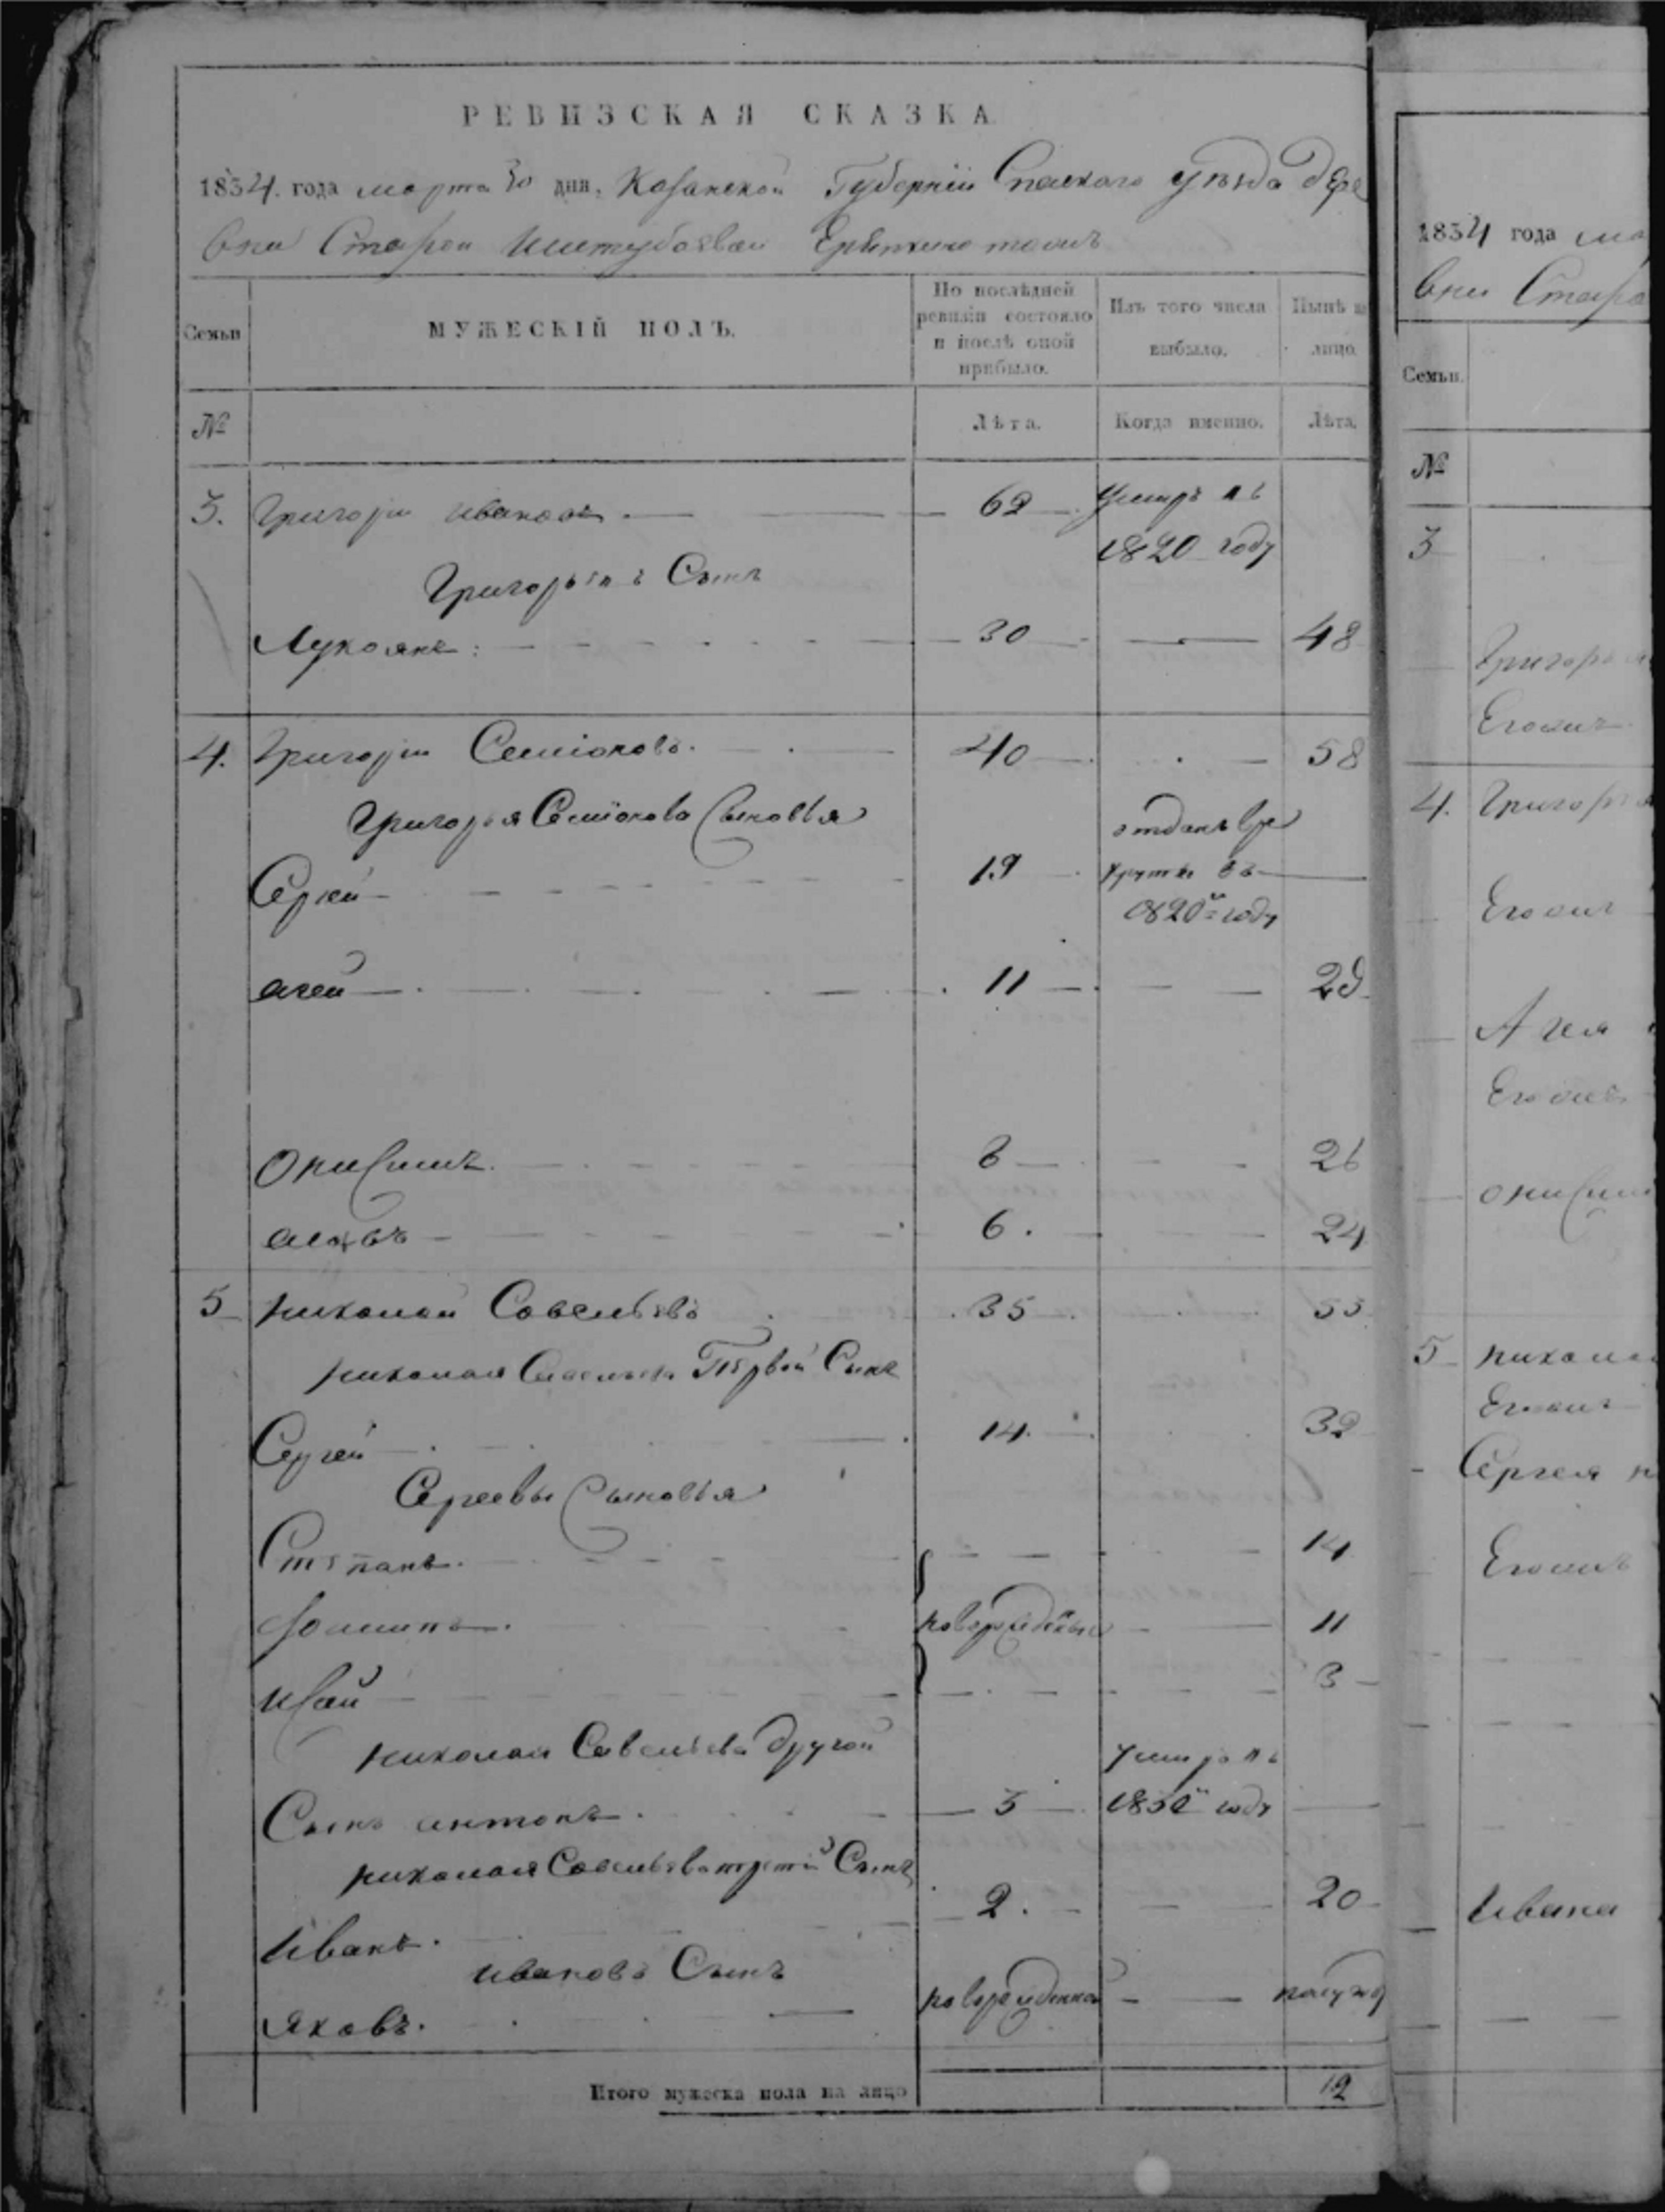 РЕВИЗСКАЯ СКАЗКА
1834. года марта 30 дня. Казанской Губерніи Спаского уѣзда дере
вни Старой Ерыткино тожъ
Семьи
МУЖЕСКІЙ ПОЛЪ.
По послѣдней ревизіи состояло и послѣ оной прибыло.
Изъ того числа выбыло.
Нынѣ на лицо.
№
Лѣта.
Когда именно.
Лѣта.
3. Григореи Ивановъ. 62 умиръ въ
1820 году
Григорьевъ Сынъ
Лукоянъ: 30 48
4. Григореи Семіоновъ. 40 58
Григорья Семіонова Сыновья
отданъ вре
Сергей 19 круты въ
1820м году
агей 11 29
Онисимъ. 8 26
6. 24
5 николай Савельевъ 35 53
николая Савельева Первой Сынъ
Сергей 14. 32
Сергеевы Сыновья
Степанъ. 14
новорожденые 11
Исай 3
николая Савельева другой
умиръ въ
Сынъ антонъ. 3 1831м году
николая Савельева третий Сынъ
Иванъ. 2. 20
Ивановъ Сынъ
Яковъ. новорожденной полугод
Итого мужеска пола на лицо 12
1834 года ма
вни Старо
Семьи.
№
3
Григорья
Егоже
4. Григорья
Егоже
Агея
Егоже
Онисим
5 никола
Егоже
Сергея н
Егоже
Ивана